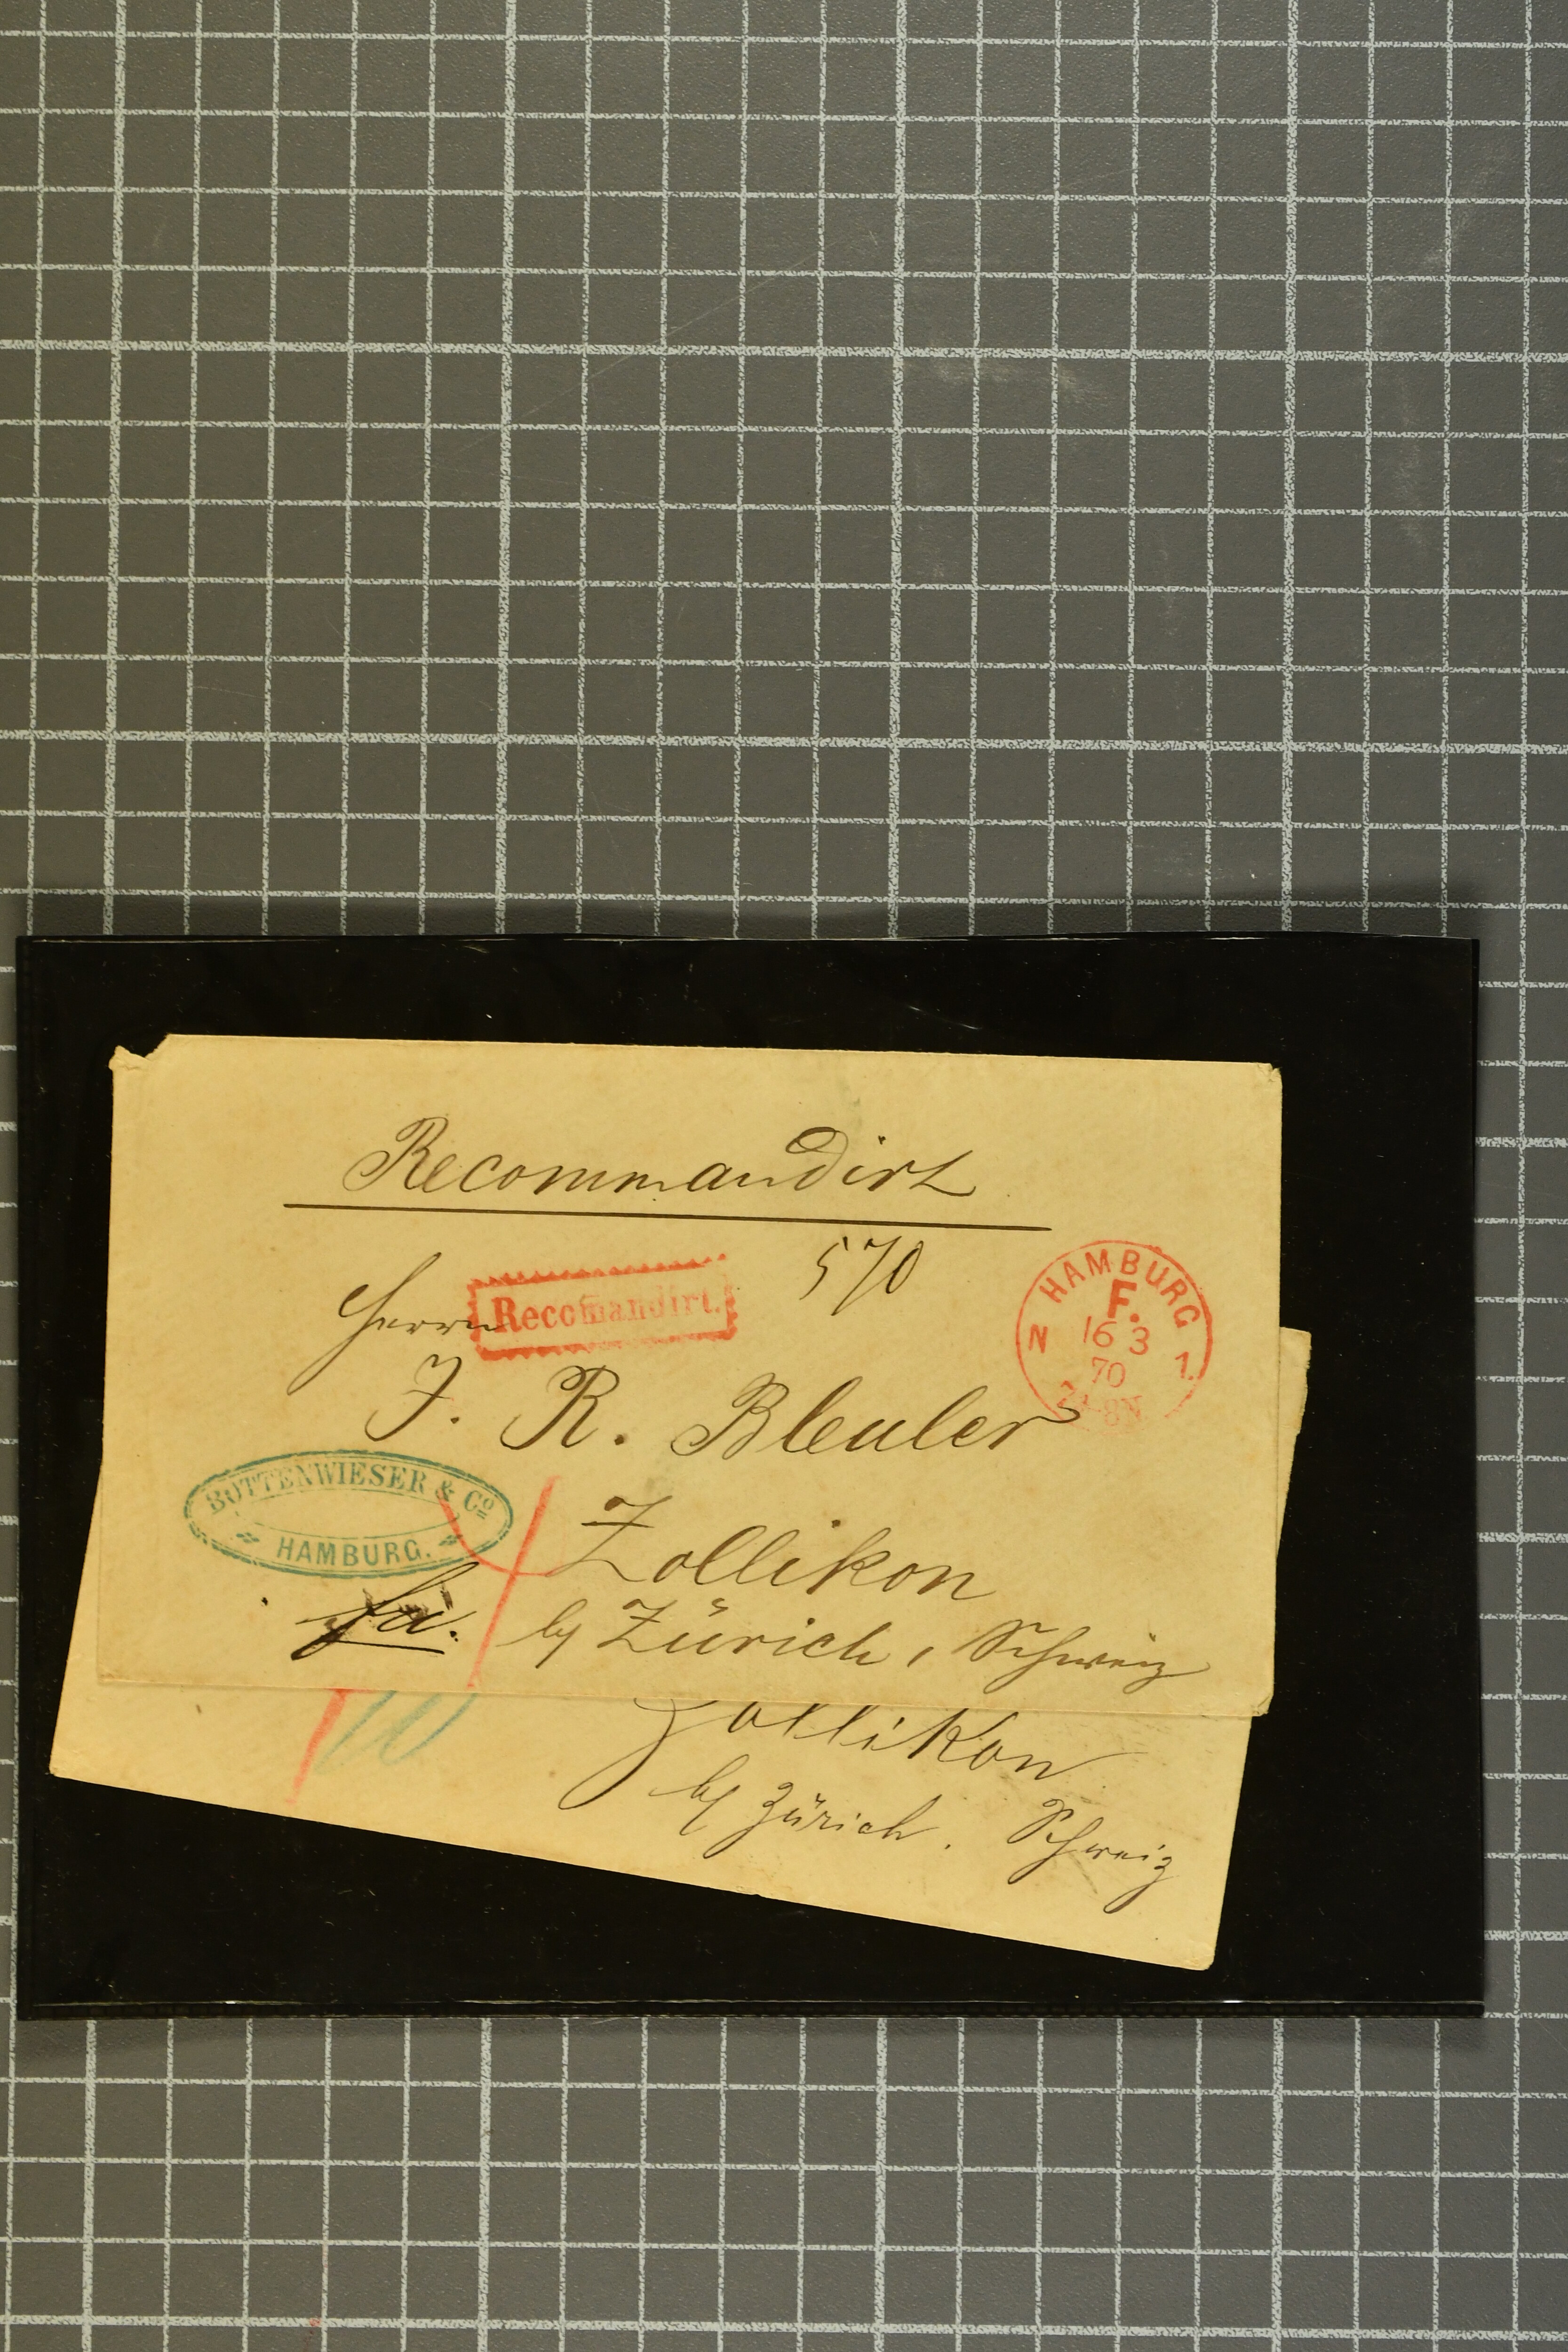 Recommandirt
570
Herrn
Recom̅andirt.
HAMBURG
F.
N 16 3 1.
70
J. R. Bleuler
BOTTENWIESER & Cº
HAMBURG.
Zollikon
fa.
by Zürich, Schweiz
10
Zollikon
by Zürich. Schweiz